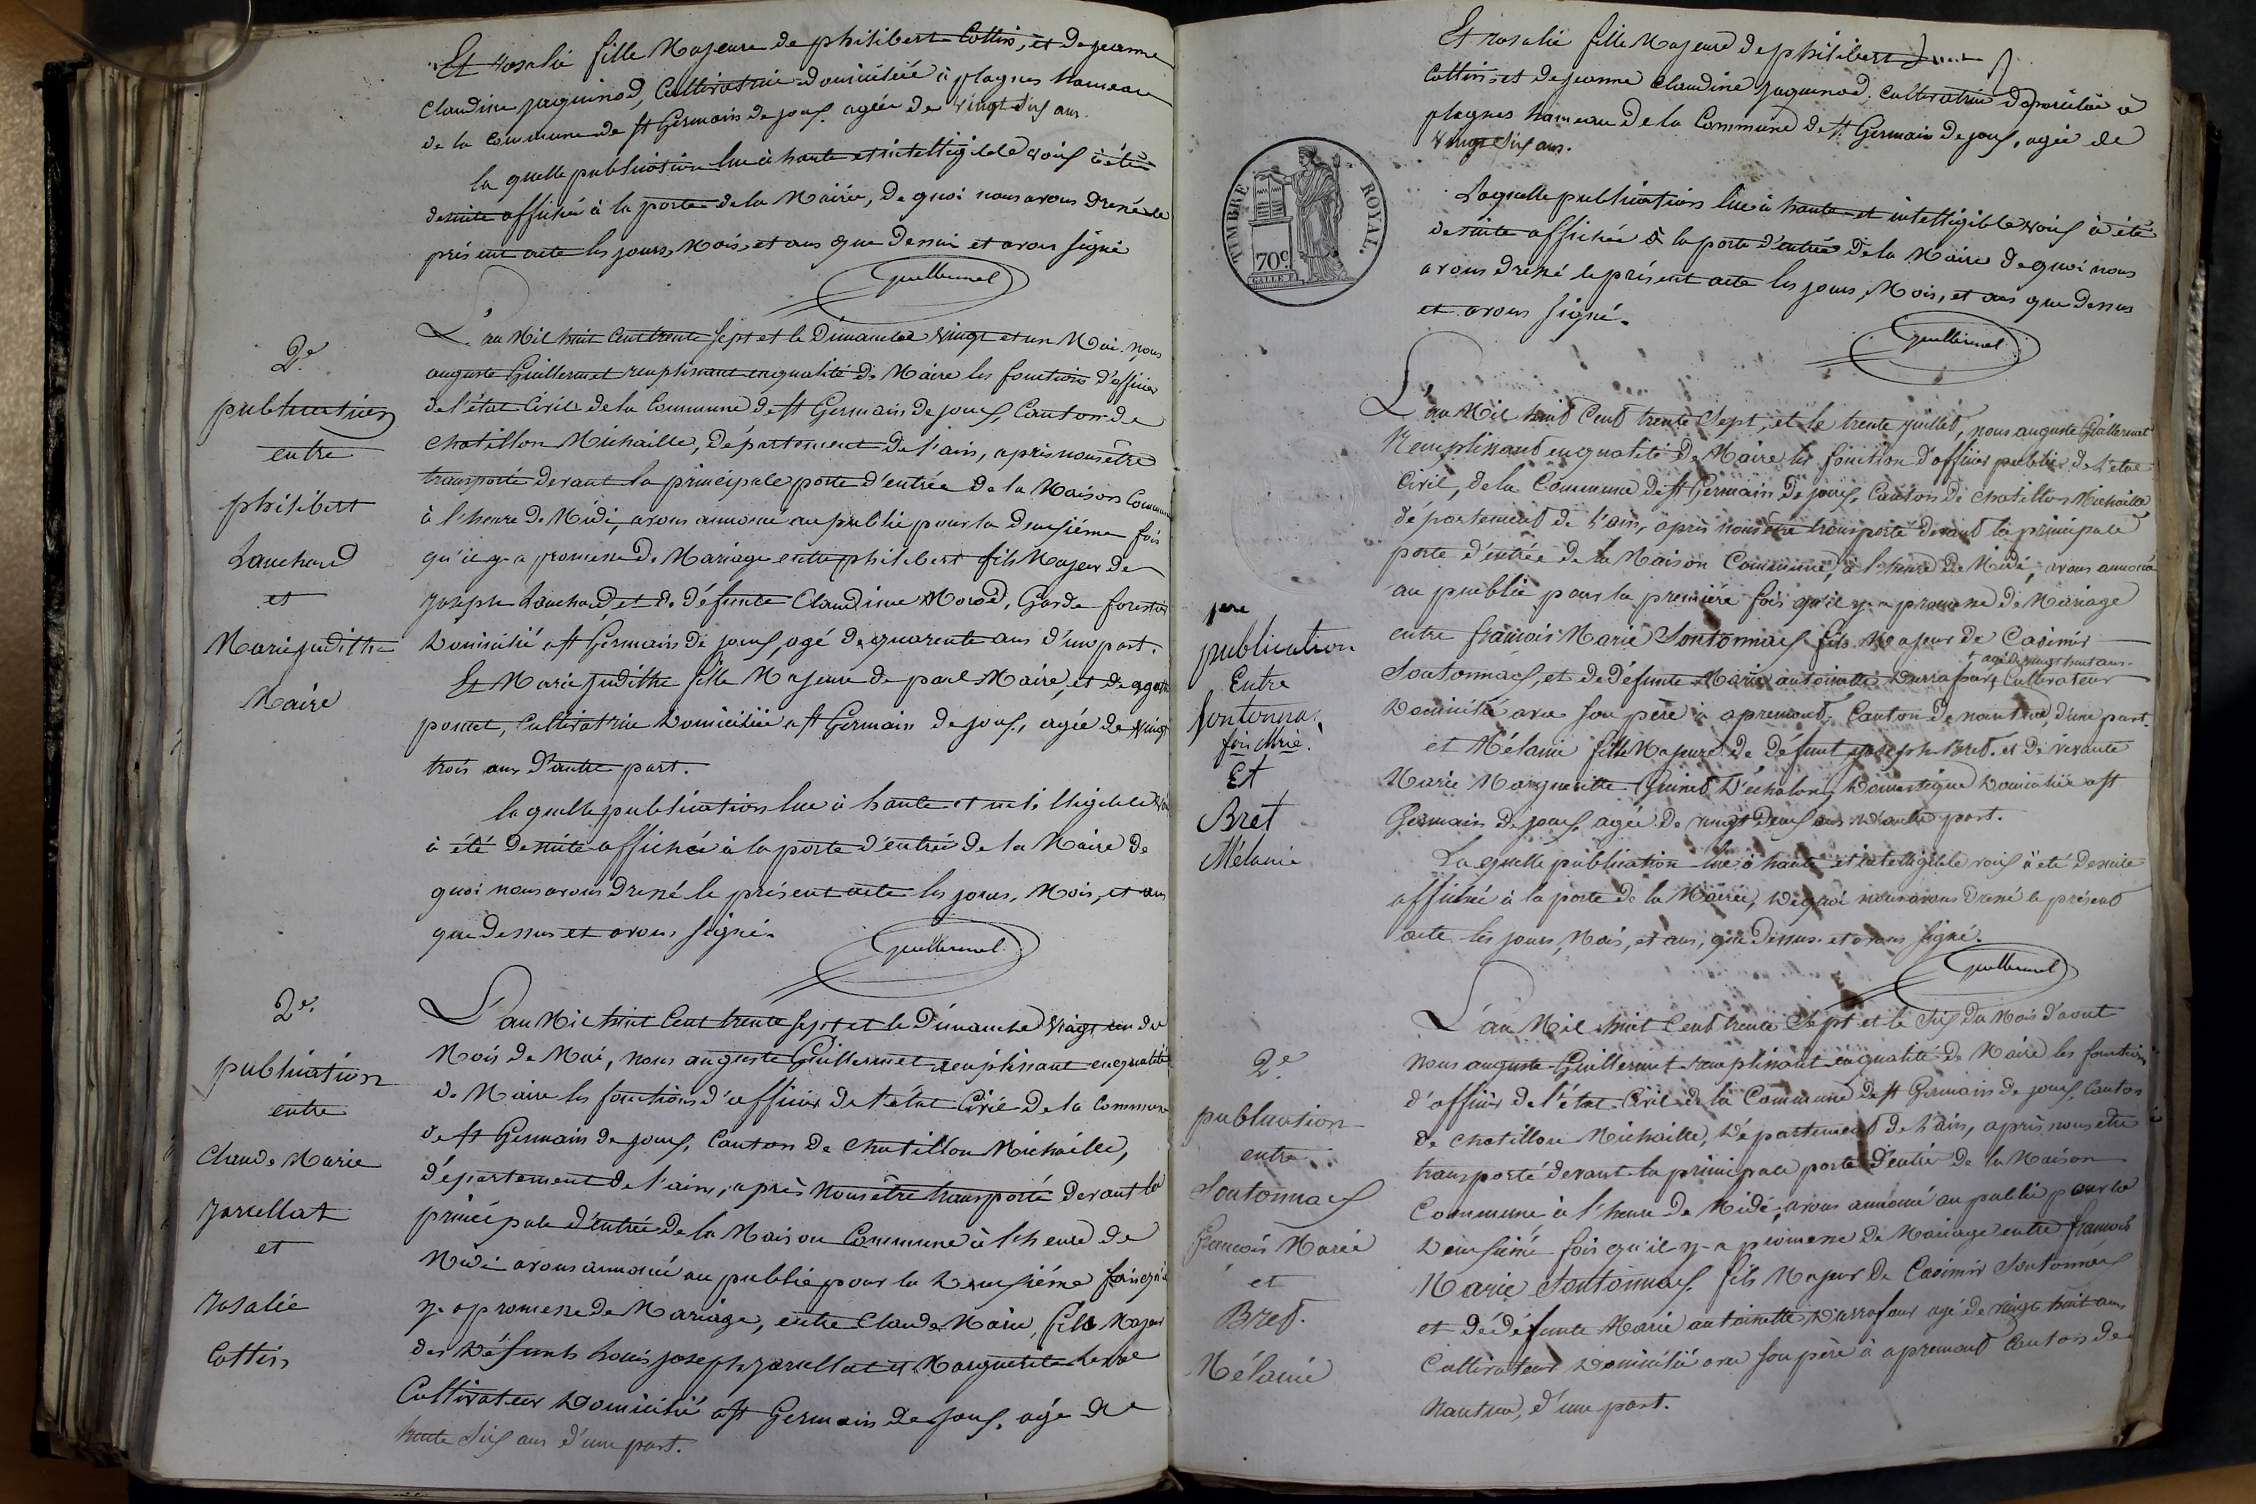 Et rosalie fille Majeure de philibert Cottin, et de jeanne
Claudine jaquinod, Cultivatrice domiciliée à plagnes hameau
de la commune de St Germain de joux, agée de vingt six ans.
la quelle publication lue à haute et intelligible voix à été
desuite affichée à la porte de la Mairie, de quoi nous avons dressé le
présent acte les jours, Mois, et ans que dessus et avons signé
Guillermet
2e.
publication
entre
philibert
Louchard
et
Marie judithe
Maire
L'an Mil huit Cent trente sept et le Dimanche vingt et un Mai, nous
auguste Guillermet remplissant en qualité de Maire les fonctions d'officier
de l'état Civil de la Commune de St Germain de joux, Canton de
Chatillon Michaille, département de l'ain, après nous être
transporté devant la principale porte d'entrée de la Maison Commune
à l'heure de Midi, avons annoncé au public pour la deuxième fois
qu'il y a promesse de Mariage entre philibert fils Majeur de
joseph Louchard, et de défunte Claudine Morod, Garde forestier
Domicilié à St Germain de joux, agé de quarente ans d'une part.
Et Marie judithe fille Majeure de paul Maire, et de
poncet, Cultivatrice Domiciliée à St Germain de joux, agée de vingt
trois ans d'autre part.
la quelle publication lue à haute et intelligible voix
à été desuite affichée à la porte d'entrée de la Maire de
quoi nous avons dressé le présent acte les jours, Mois, et ans
que dessus et avons signé.
Guillermet
2e.
publication
entre
Claude Marie
jarcellat
et
rosalie
Cottin
L'an Mil huit Cent trente sept et le Dimanche vingt un du
Mois de Mai, nous auguste Guillermet remplissant en qualité
de Maire les fonctions d'officier de l'état Civil de la Commune
de St Germain de joux, Canton de Chatillon Michaille,
département de l'ain, après nous être transporté devant la
principale d'entrée de la Maison Commune à l'heure de
Midi avons annoncé au public pour la deuxième fois qu'il
y a promesse de Mariage, entre Claude Marie, fils Majeur
des Défunts Louis joseph jarcellat et Marguerite
Cultivateur Domicilié à St Germain de joux, agé de
trente six ans d'une part.
Et rosalie fille Majeure de philibert
Cottin et de jeanne Claudine jaquinod, Cultivatrice Domiciliée à
plagnes hameau de la Commune de St Germain de joux, agée de
vingt six ans.
TIMBRE ROYAL.
70c
Laquelle publication lue à haute et intelligible voix à été
desuite affichée à la porte d'entrée de la Maire de quoi nous
avons dressé le présent acte les jours, Mois, et ans que dessus
et avons signé.
Guillermet
1ere
publication
Entre
Sontonnax
fois Mrie.
Et
Bret
Mélanie
L'an Mil huit Cent trente Sept, et le trente juillet, nous auguste Guillermet
Remplissant en qualité de Maire les fonction d'officier public de l'état
Civil, de la Commune de St Germain de joux, Canton de Chatillon Michaille
département de l'ain, après nous être transporté devant la principale
porte d'entrée de la Maison Commune, à l'heure de Midi, avons annoncé
au public pour la première fois qu'il y a promesse de Mariage
entre francois Marie Sontonnax fils Majeur de Casimir
+ agé de vingt huit ans
Sontonnax, et de défunte Marie antoinette + Cultivateur
Domicilié avec son père à apremont, Canton de nantua, d'une part.
et Mélanie fille Majeure de défunt joseph Bret. et de vivante
Marie Marguerite Guinet D'échalon, Domestique Domiciliée à St
Germain de joux, agée de vingt deux ans d'autre part.
La quelle publication lue à haute et intelligible voix à été desuite
affichée à la porte de la Mairie, de quoi nous avons dressé le présent
acte les jours, Mois, et ans, que dessus et avons signé.
Guillermet
2e
publication
entre
Sontonnax
François Marie
et
Bret.
Mélanie
L'an Mil huit Cent trente Sept et le Six du Mois d'aout
nous auguste Guillermet remplissant en qualité de Maire les fonctions
d'officier de l'état Civil de la Commune de St Germain de joux, Canton
de Chatillon Michaille, Département de l'ain, après nous être
transporté devant la principale porte d'entrée de la Maison
Commune à l'heure de Midi, avons annoncé au public pour la
deuxième fois qu'il y a promesse de Mariage entre françois
Marie Sontonnax, fils Majeur de Casimir Sontonnax
et de défunte Marie antoinette agé de vingt huit ans
Cultivateur Domicilié avec son père à apremont Canton de
Nantua, d'une part.